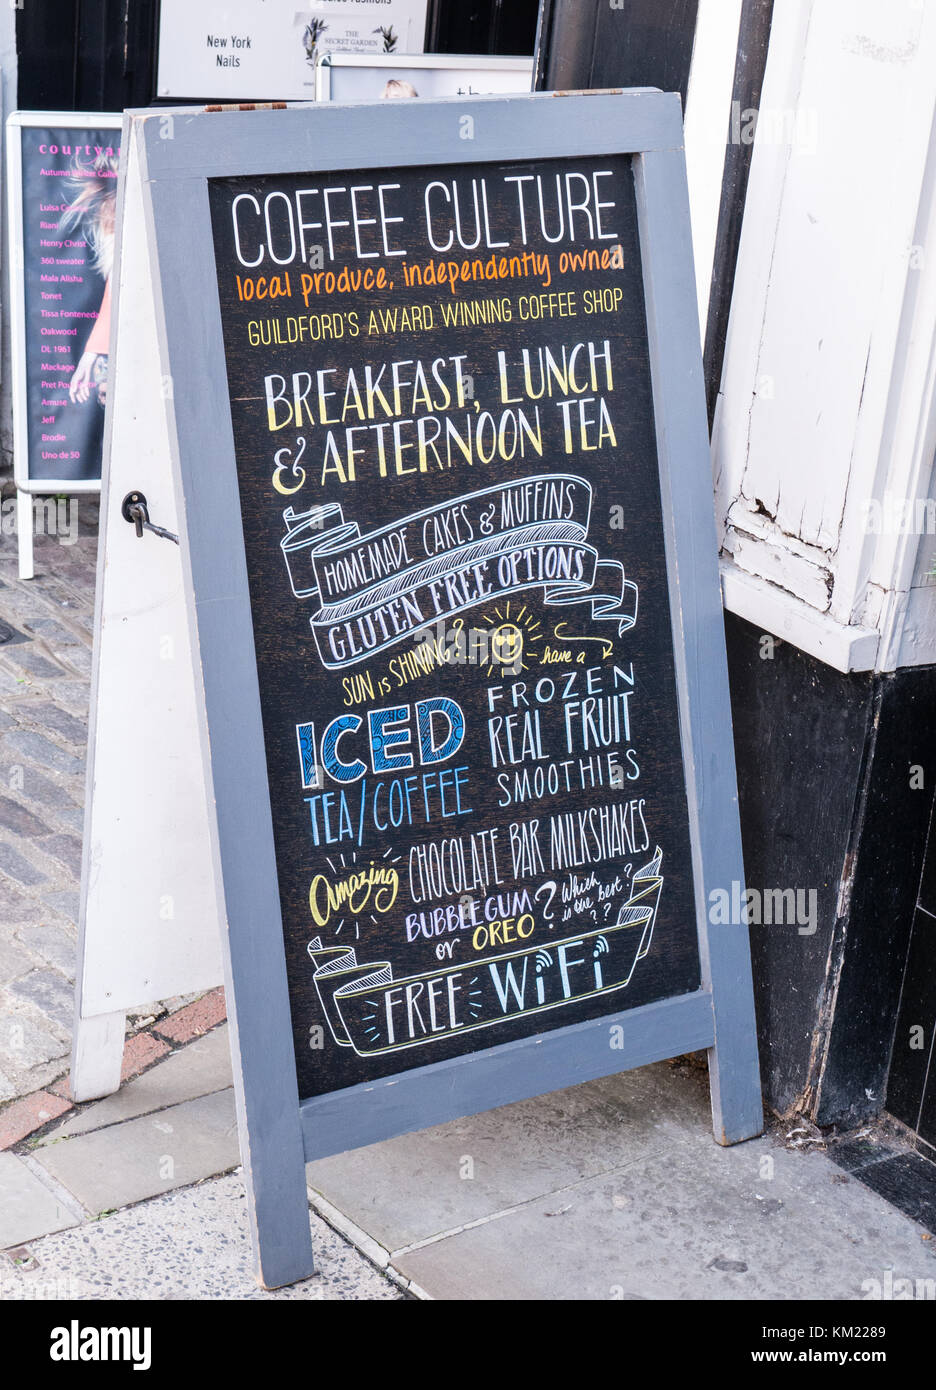 New York
Nails
THE
SECRET GARDEN
courtya
Autumn Winter Colle
Luisa C
Riani
Henry Christ
360 sweater
Mala Alisha
Tonet
Tissa Fonteneda
Oakwood
DL 1961
Mackage
Pret Pou
Amuse
Jeff
Brodie
Uno de 50
COFFEE CULTURE
local produce, independently owned
GUILDFORD'S AWARD WINNING COFFEE SHOP
BREAKFAST, LUNCH
& AFTERNOON TEA
HOMEMADE CAKES & MUFFINS
GLUTEN FREE OPTIONS
SUN is SHINING?... have a
ICED
TEA/COFFEE
FROZEN
REAL FRUIT
SMOOTHIES
Amazing CHOCOLATE BAR MILKSHAKES
BUBBLEGUM
or OREO?
Which
is the best?
? ?
FREE WiFi
alamy
Image ID: KM2289
www.alamy.com